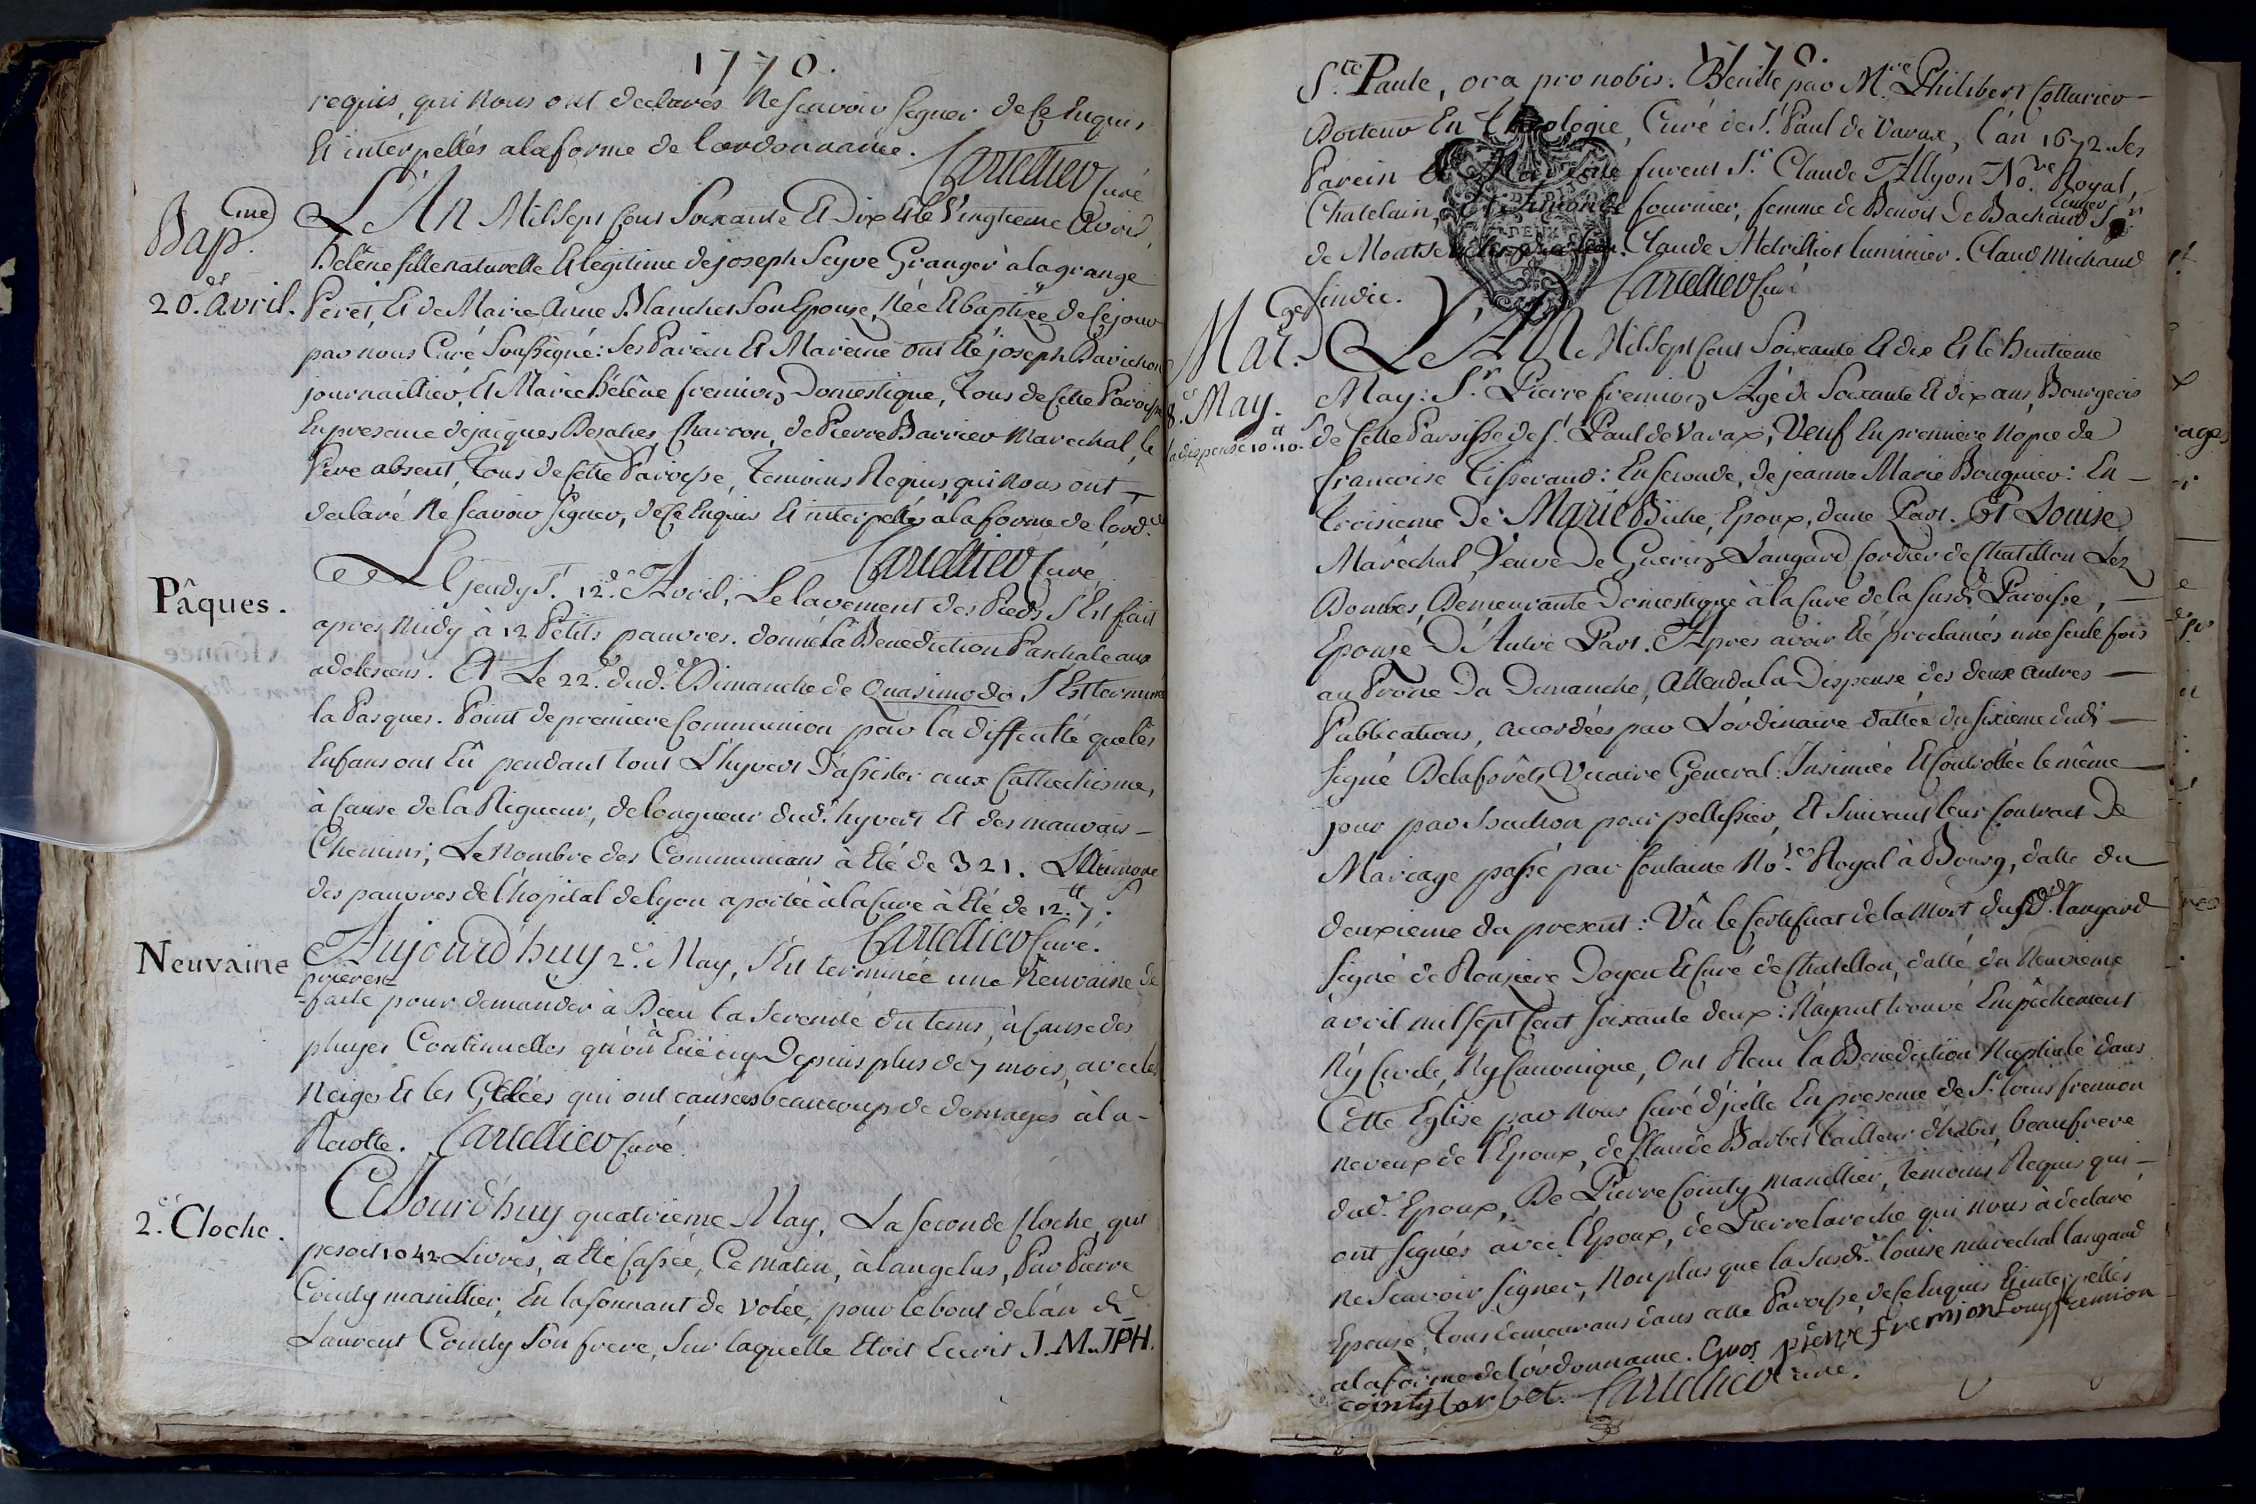 1770.
requis, qui nous ont declarés ne scavoir signer de ce enquis
et interpellés a la forme de l'ordonnance. Cartellier curé
Bap.me
20.e avril.
L'An Mil sept cent soixante et dix et le vingtieme avril,
hélène fille naturelle et legitime de joseph Seyve Granger à la grange
Peret, et de Marie Anne Blanchet son Epouse, née et baptisée de ce jour
par nous Curé soussigné: ses Parein et Mareine ont été joseph Bavichon
journaillier, et Marie hélène fremion Domestique, tous de cette Paroisse
En presence de jacques Desalies Charron, de Pierre Barrier Marechal, le
Pere absent, tous de cette Paroisse, temoins Requis qui nous ont
declaré ne scavoir signer, de ce enquis et interpellés à la forme de l'ord.ce
Cartellier curé
Pâques.
Le jeudy S.t 12.e Avril, Le lavement des Pieds s'est fait
apres midy à 12 Petits pauvres. donné la Benediction Paschale aux
adolescens. Et Le 22.e dud. Dimanche de Quasimodo, s'est terminée
la Pasques. Point de premiere Communion par la difficulté que les
Enfans ont Eû pendant tout L'hyvert d'assister aux Cathechisme,
à cause de la Rigueur, de longueur dud. hyvert et des mauvais
Chemins; Le nombre des Communians à été de 321. L'Aumone
des pauvres de l'hôpital de lyon aportée à la cure à été de 12.tt 7.s
Cartellier curé.
Neuvaine
Aujourd'huy 2.e May, s'est terminée une Neuvaine de
prieres
faite pour demander à Dieu la serenité du tems, à cause des
pluyes Continuelles qu'on à Eüe icy Depuis plus de 7 mois, avec les
Neiges et les Gelées qui ont causées beaucoup de domages à la
Recolte. Cartellier curé.
2.e Cloche.
Cejourd'huy quatrieme May, La seconde Cloche, qui
pesoit 1042 Livres, à été cassée, Ce matin, à langelus, Par Pierre
Cointy manillier, En la sonnant de volée, pour le bout de l'an de
Laurent Cointy son frere, sur laquelle Etoit Ecrit J.M.JPH.
1770.
S.te Paule, ora pro nobis. Benitte par M.re Philibert Collarier
Docteur En Theologie, Curé de S.t Paul de Varax, l'an 1672. ses
Parein et Mareine furent S.r Claude Allyon No.re Royal,
Chatelain, et Simonde fournier, femme de Benoit De Bachaud S.r
de Montse Claude Melvilliot luminier. Claud Michaud
sindic. Cartellier Curé
Mar.ge
8.e May.
la dispense 10.tt 10.s
L'AN Mil sept cent soixante et dix et le huitieme
May: S.r Pierre fremion Agé de Soixante et dix ans, Bourgeois
de cette Paroisse de S.t Paul de Varax, Veuf En premiere Nopce de
francoise Tisserand: En seconde, de jeanne Marie Bouquier: En
Troisieme De Marie Biche, Epoux, d'une Part. Et Louise
Maréchal, Veuve De Guerin Langard Cordier de Chatillon Lez
Dombes, Demeurante Domestique à la cure de la susd. Paroisse,
Epouse D'Autre Part. Apres avoir été proclamés une seule fois
au Prone Du Dimanche, Attendu la Dispense des deux autres
Publications, accordées par L'ordinaire dattée du sixieme dud.
signé Delaforêt, Vicaire General: Insinuée et Controllée le même
jour par Souchon pour pellissier, et suivant leur Contract De
Mariage passé par fontaine No.re Royal à Bourg, datté du
deuxieme du present: Vû le Certificat de la Mort dud. langard
signé de Rouziere Doyen et Curé de Chatillon, datté du Neuvieme
avril mil sept cent soixante deux: N'ayant trouvé Empêchement
Ny Civile, Ny Canonique, Ont Recu la Benediction Nuptiale dans
Cette Eglise par nous Curé d'icelle En presence de S.r louis fremion
neveux de l'Epoux, de Claude Barbet tailleur d'habis, beaufrere
dud. Epoux, De Pierre Cointy manillier, temoins Requis qui
ont signés avec l'Epoux, de Pierre laroche qui nous à declaré
ne scavoir signer, non plus que la susd. louise maréchal langard
Epouse, tous demeurans dans cette Paroisse, de ce enquis et interpellés
a la forme de l'ordonnance. Gros pierre fremion Louy fremion
cointy barbet. Cartellier curé.